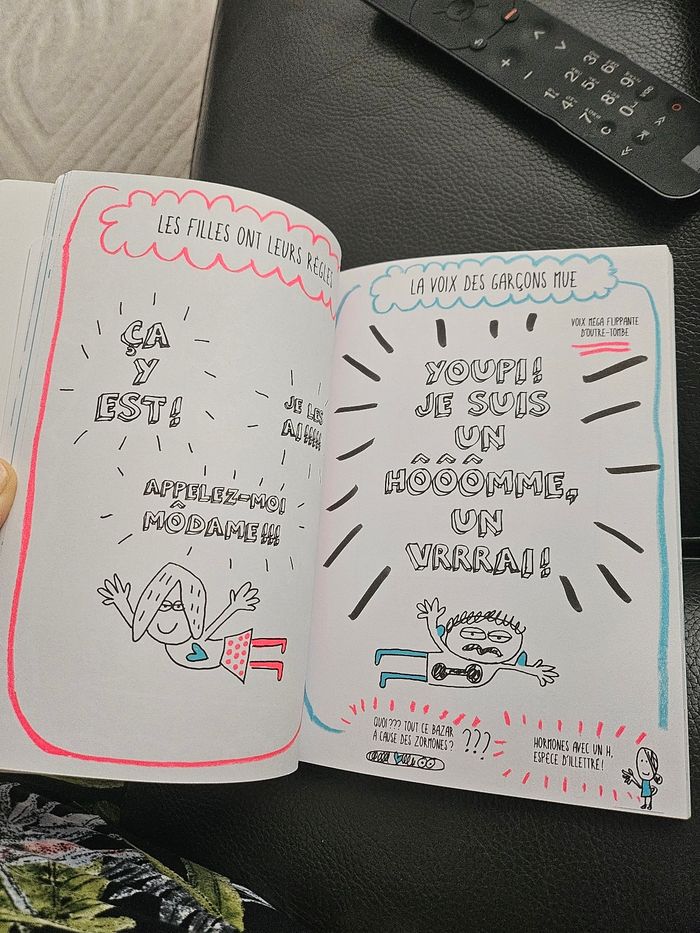 LES FILLES ONT LEURS RÈGLES
ÇA
Y
EST!
JE LES
AI!!!!!
APPELEZ-MOI
MÔDAME!!!
LA VOIX DES GARÇONS MUE
VOIX MÉGA FLIPPANTE
D'OUTRE-TOMBE
YOUPI!
JE SUIS
UN
HÔÔÔMME,
UN
VRRRAI!
QUOI??? TOUT CE BAZAR
À CAUSE DES ZORMONES?
???
HORMONES AVEC UN H,
ESPÈCE D'ILLETTRÉ!